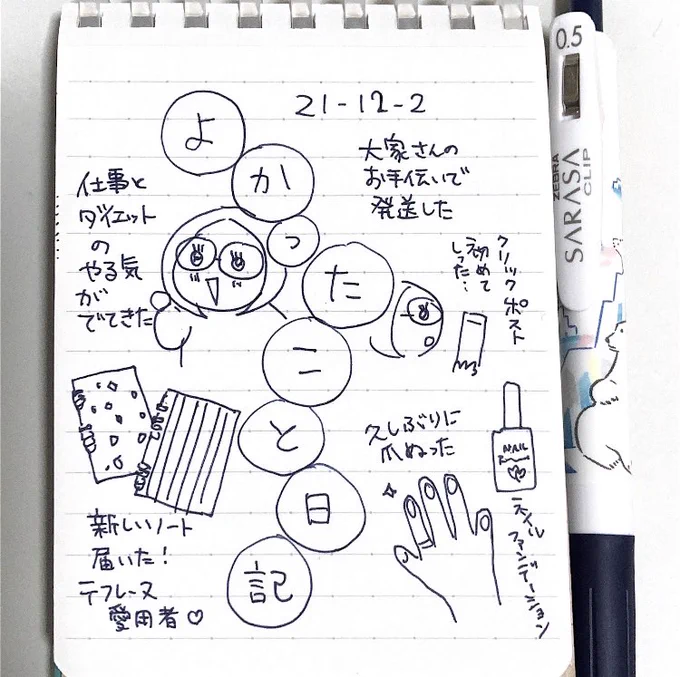 21-12-2
よかったこと日記
仕事と
ダイエット
の
やる気
が
でてきた
大家さんの
お手伝いで
発送した
クリックポスト
初めて
しった…
新しいノート
届いた！
テフレーヌ
愛用者♡
久しぶりに
爪ぬった
NAIL
ネイル
ファンデーション
0.5
ZEBRA
SARASA
CLIP